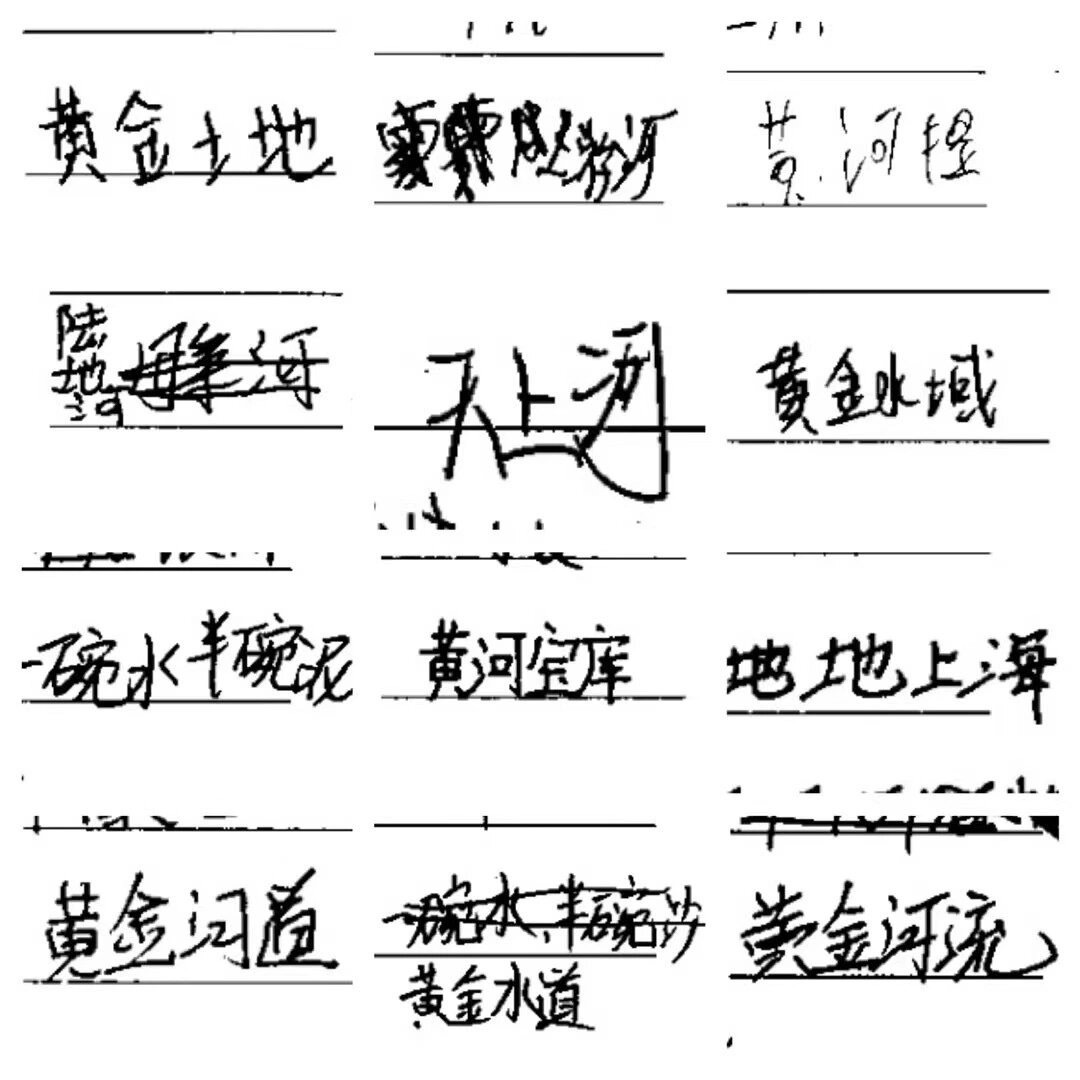 黄金土地
河
黄河
陆地河
天上河
黄金水域
一碗水半碗泥
黄河宝库
地地上海
黄金河道
一碗水,半碗沙
黄金水道
黄金河流